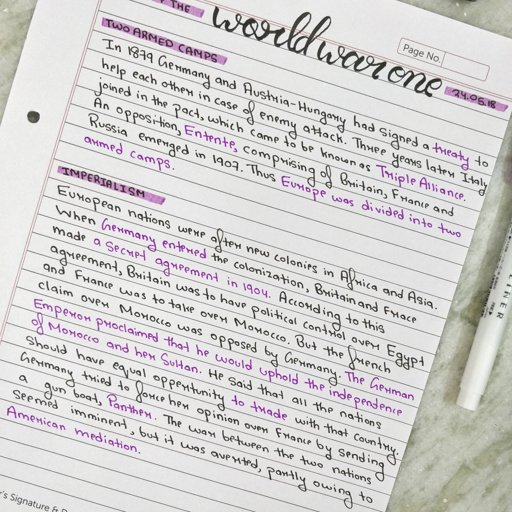 THE
world war one
Page No.
24.05.18
TWO ARMED CAMPS
In 1879 Germany and Austria-Hungary had signed a treaty to
help each other in case of enemy attack. Three years later Italy
joined in the pact, which came to be known as Triple Alliance.
An opposition, Entente, comprising of Britain, France and
Russia emerged in 1907. Thus Europe was divided into two
armed camps.
IMPERIALISM
European nations were after new colonies in Africa and Asia.
When Germany entered the colonization, Britain and Frace
made a secret agreement in 1904. According to this
agreement, Britain was to have political control over Egypt
and France was to take over Morocco. But the french
claim over Morocco was opposed by Germany. The German
Emperor proclaimed that he would uphold the independence
of Morocco and her Sultan. He said that all the nations
should have equal opportunity to trade with that country.
Germany tried to force her opinion over France by sending
a gun boat, Panther. The war between the two nations
seemed imminent, but it was averted, partly owing to
American mediation.
's Signature &
LINER